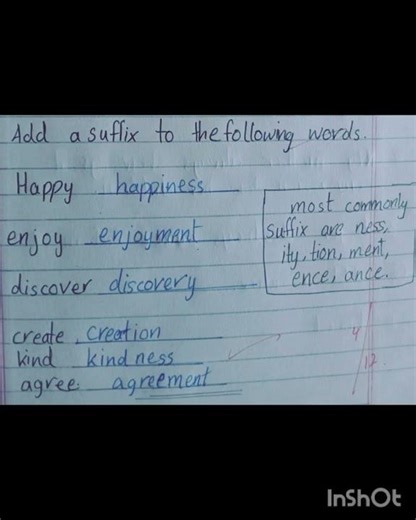 Add a suffix to the following words.
Happy happiness
enjoy enjoyment
discover discovery
create creation
kind kindness
agree agreement
most commonly
suffix are ness,
ity, tion, ment,
ence, ance.
4/12
InShOt